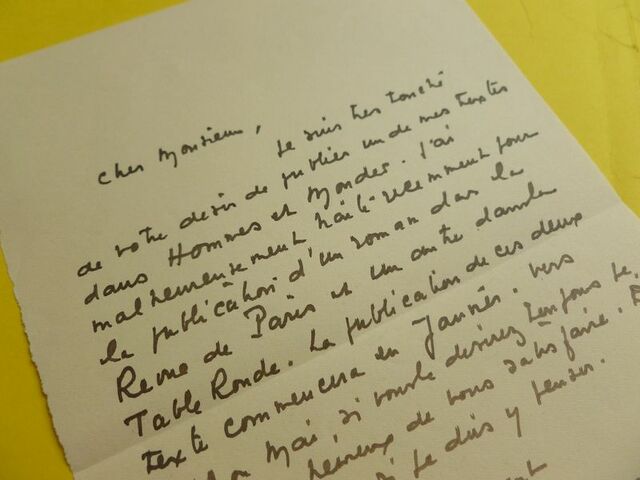 Cher Monsieur,
Je suis très touché
de votre désir de publier un de mes textes
dans Hommes et Mondes. J'ai
malheureusement traité récemment pour
la publication d'un roman dans la
Revue de Paris et un autre dans la
Table Ronde. La publication de ces deux
texte commencera en Janvier. Vers
Mai, si vous le désirez
heureux de vous satisfaire.
je dois y penser.